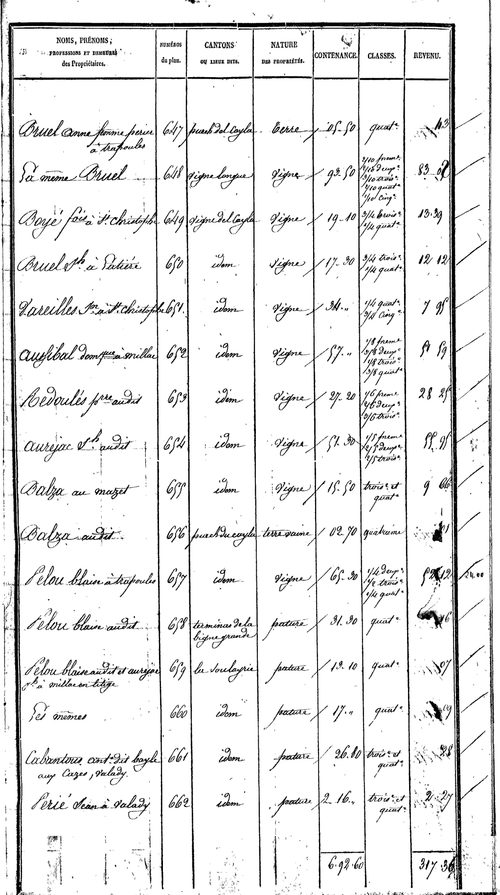 NOMS, PRÉNOMS, PROFESSIONS ET DEMEURES des Propriétaires. NUMÉROS du plan. CANTONS OU LIEUX DITS. NATURE DES PROPRIÉTÉS. CONTENANCE. CLASSES. REVENU.
Bruel anne femme perier 647 puech del Cayla terre 05-50 quat.e
à trapoules
La même Bruel 648 vigne longue vigne 93.50 83
Boyé fois à St. christophe 649 vigne del Cayla vigne 19-10 3/4 trois.e 1/4 quat.e 13.39
Bruel à 650 idem vigne 17-30 3/4 trois.e 1/4 quat.e 12 12
Lareilles à St. christophe 651. idem vigne 34.. 1/4 quat.e 3/4 cinq.e 7 95
domque à millac 652 idem vigne 57.. 1/8 preme 3/8 deux.e 1/8 trois.e 3/8 quat.e 51 59
Redoulès pre audit 653 idem vigne 27-20 1/6 preme 2/6 deux.e 3/6 trois.e 28 25
aurejac audit 654 idem vigne 51.30 1/5 preme 2/5 deux.e 2/5 trois.e 55 95
Balza au mazet 655 idem vigne 15.50 trois.e et quat.e 9 06
Balza audit 656 puech du cayla terre vaine 02.70 quatrieme
Pélou blaise à trapoules 657 idem vigne 65-30 1/4 deux.e 2/4 trois.e 1/4 quat.e 52 12
Pélou blaise audit 658 terminas de la pature 31.30 quat.e
bigne grande
Pélou blaise audit et aurejac 659 la Soulayrie pature 13.10 quat.e
à millac en litige
Les mêmes 660 idem pature 17.. quat.e
Cabantous ant.e dit bayle 661 idem pature 26.80 trois.e et quat.e
aux Cazes, valady
Perié Jean à Valady 662 idem pature 2-16.. trois.e et quat.e 2 27
6-92-60 317-36